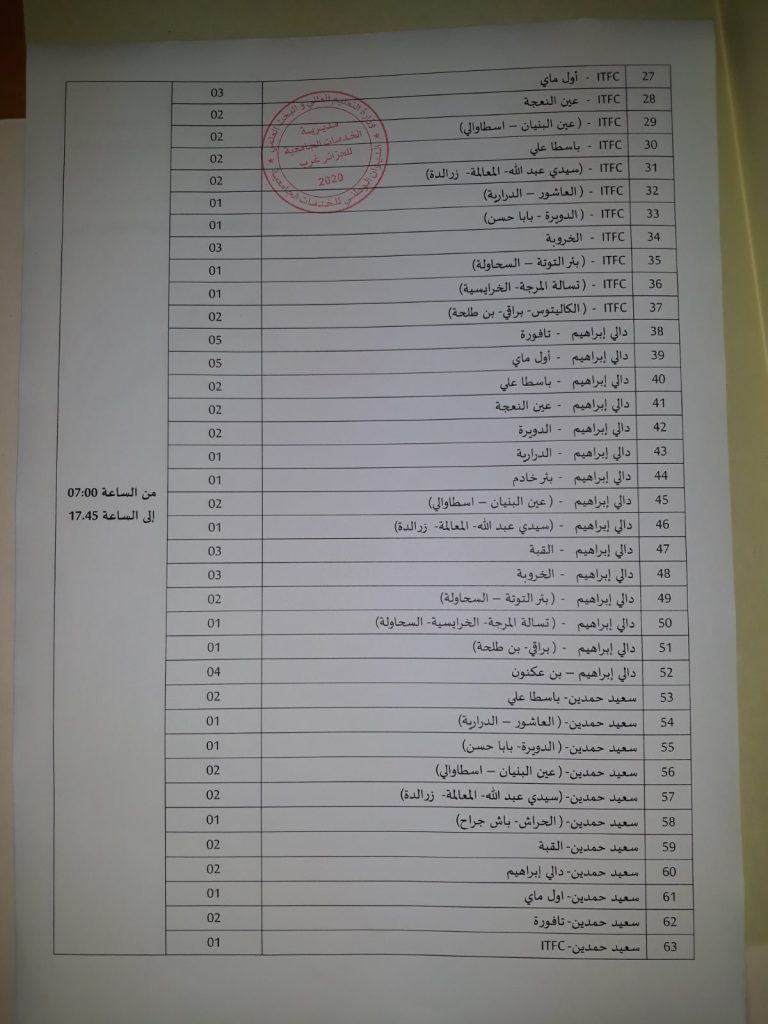 27 ITFC - أول ماي 03
28 ITFC - عين النعجة 02
29 ITFC - ( عين البنيان – اسطاوالي) 02
30 ITFC - باسطا علي 02
31 ITFC - (سيدي عبد الله- المعالمة- زرالدة) 02
32 ITFC - ( العاشور – الدرارية) 01
33 ITFC - ( الدويرة - بابا حسن) 01
34 ITFC - الخروبة 03
35 ITFC - ( بئر التوتة – السحاولة) 01
36 ITFC - ( تسالة المرجة- الخرايسية) 01
37 ITFC - ( الكاليتوس- براقي- بن طلحة) 02
38 دالي إبراهيم - تافورة 05
39 دالي إبراهيم - أول ماي 05
40 دالي إبراهيم - باسطا علي 02
41 دالي إبراهيم - عين النعجة 02
42 دالي إبراهيم - الدويرة 02
43 دالي إبراهيم - الدرارية 01
44 دالي إبراهيم - بئر خادم 01
45 دالي إبراهيم - ( عين البنيان – اسطاوالي) 02
46 دالي إبراهيم - (سيدي عبد الله- المعالمة- زرالدة) 01
47 دالي إبراهيم - القبة 03
48 دالي إبراهيم - الخروبة 03
49 دالي إبراهيم - ( بئر التوتة – السحاولة) 02
50 دالي إبراهيم - ( تسالة المرجة- الخرايسية- السحاولة) 01
51 دالي إبراهيم - ( براقي- بن طلحة) 01
52 دالي إبراهيم – بن عكنون 04
53 سعيد حمدين- باسطا علي 02
54 سعيد حمدين- ( العاشور – الدرارية) 01
55 سعيد حمدين- ( الدويرة- بابا حسن) 01
56 سعيد حمدين- ( عين البنيان – اسطاوالي) 02
57 سعيد حمدين- (سيدي عبد الله- المعالمة- زرالدة) 02
58 سعيد حمدين- ( الحراش- باش جراح) 01
59 سعيد حمدين- القبة 02
60 سعيد حمدين- دالي إبراهيم 02
61 سعيد حمدين- اول ماي 01
62 سعيد حمدين- تافورة 02
63 سعيد حمدين- ITFC 01
من الساعة 07:00
إلى الساعة 17.45
وزارة التعليم العالي و البحث العلمي
الديوان الوطني للخدمات الجامعية
مديرية
الخدمات الجامعية
للجزائر غرب
2020